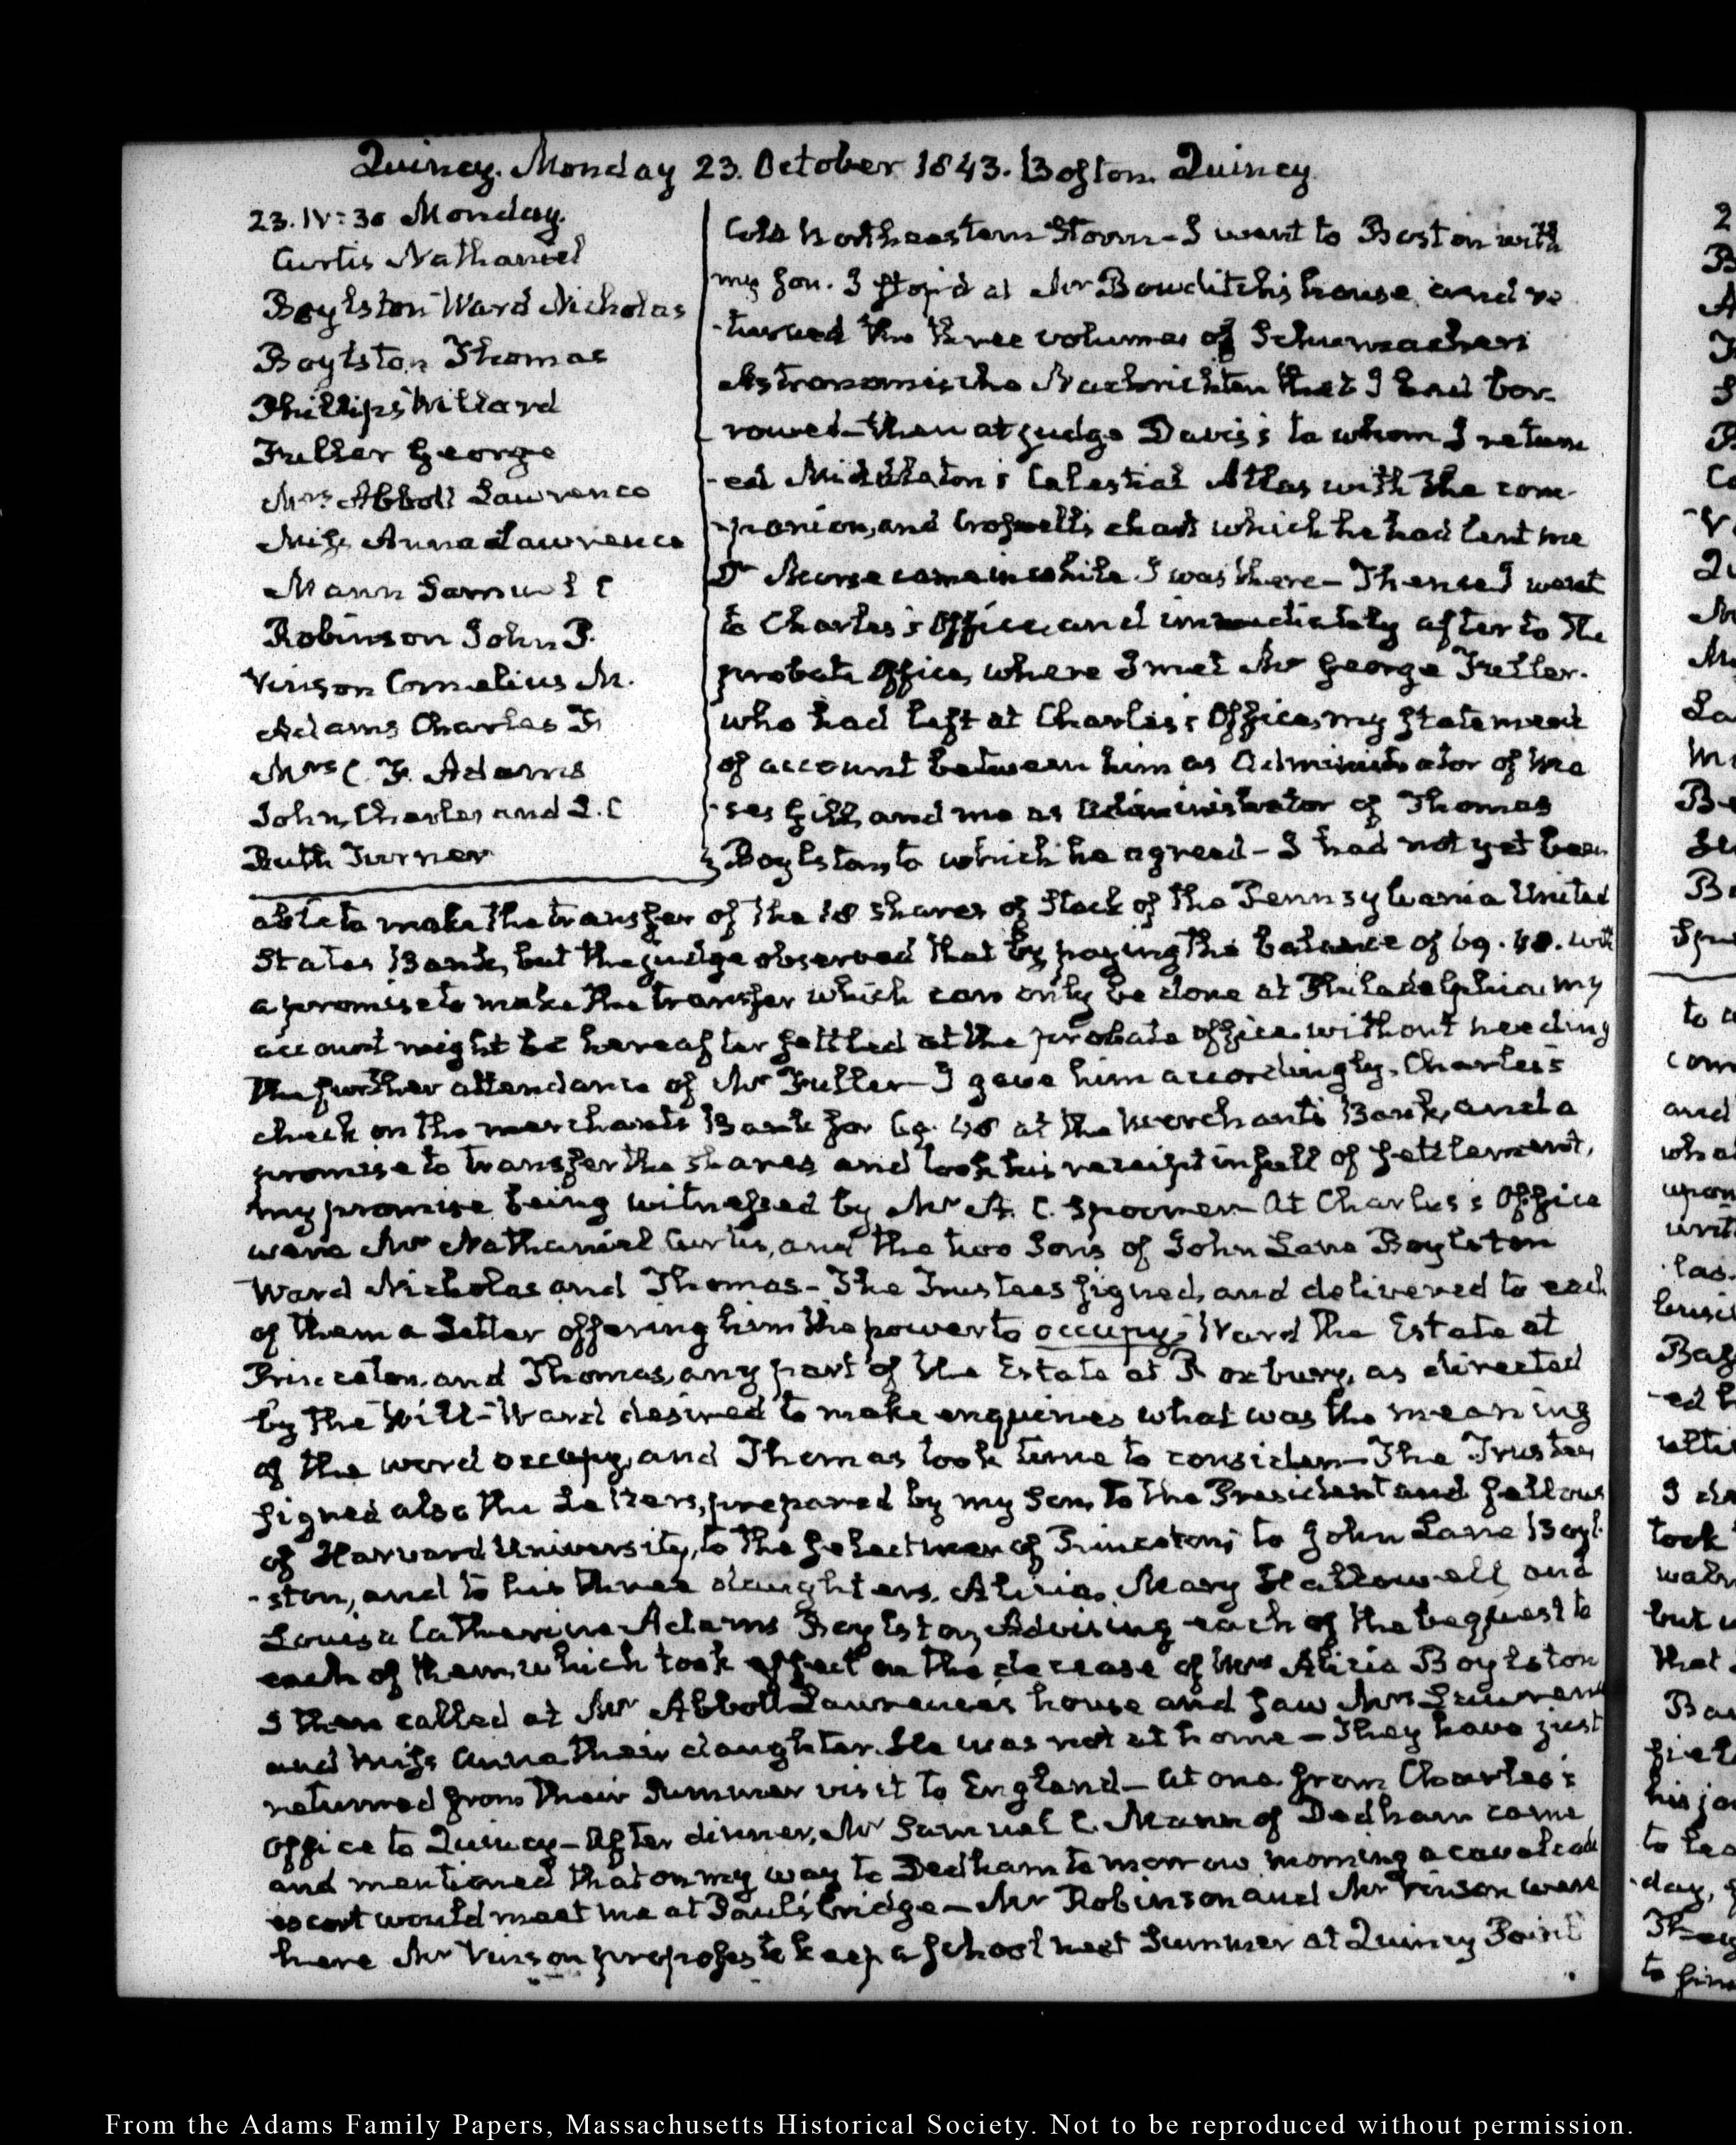 Quincy. Monday 23. October 1843. Boston. Quincy
23. IV:30 Monday.
Curtis Nathaniel
Boylston Ward Nicholas
Boylston Thomas
Phillips Willard
Fuller George
Mrs Abbott Lawrence
Miss Anna Lawrence
Mann Samuel C
Robinson John P.
Vinson Cornelius M.
Adams Charles F.
Mrs C. F. Adams
John, Charles and L. C
Ruth Turner
Cold Northeastern Storm - I went to Boston with
my son. I stop'd at Mr Bowditch's house and re
-turned the three volumes of Schumachers
Astronomische Nachrichten that I had bor-
rowed - then at judge Davis's to whom I return
-ed Middleton's Celestial Atlas with the com-
-panion, and Croswell's chart which he had lent me
Dr Morse came in while I was there - Thence I went
to Charles's Office, and immediately after to the
probate Office, where I met Mr George Fuller.
who had left at Charles's Office, my statement
of account between him as Administrator of Mo
-ses Gill, and me as Administrator of Thomas
Boylston, to which he agreed - I had not yet been
able to make the transfer of the 18 shares of Stock of the Pennsylvania United
States Bank, but the judge observed that by paying the balance of 69.48. with
a promise to make the transfer which can only be done at Philadelphia, my
account might be hereafter settled at the probate office without needing
the further attendance of Mr Fuller - I gave him accordingly, Charles's
check on the merchants Bank for 69.48 at the Merchants Bank, and a
promise to transfer the shares and took his receipt in full of settlement,
my promise being witnessed by Mr A. C. Spooner - At Charles's Office
were Mr Nathaniel Curtis, and the two Sons of John Lane Boylston
Ward Nicholas and Thomas - The Trustees signed, and delivered to each
of them a Letter offering him the power to occupy; Ward the Estate at
Princeton, and Thomas, any part of the Estate at Roxbury, as directed
by the Will - Ward desired to make enquiries what was the meaning
of the word occupy, and Thomas took time to consider - The Trustees
signed also the Letters, prepared by my Son, to the President and fellows
of Harvard University, to the Selectmen of Princeton; to John Lane Boyl-
-ston, and to his three daughters, Alicia, Mary Hallowell, and
Louisa Catherine Adams Boylston, Advising each of the bequest to
each of them, which took effect on the decease of Mrs Alicia Boylston
I then called at Mr Abbott Lawrence's house and saw Mrs Lawrence
and Miss Anna their daughter. He was not at home - They have just
returned from their Summer visit to England - At one from Charles's
Office to Quincy - After dinner, Mr Samuel C. Mann of Dedham came
and mentioned that on my way to Dedham to morrow morning a cavalcade
escort would meet me at Paul's bridge - Mr Robinson and Mr Vinson were
here Mr Vinson proposes to keep a School next Summer at Quincy Point
From the Adams Family Papers, Massachusetts Historical Society. Not to be reproduced without permission.